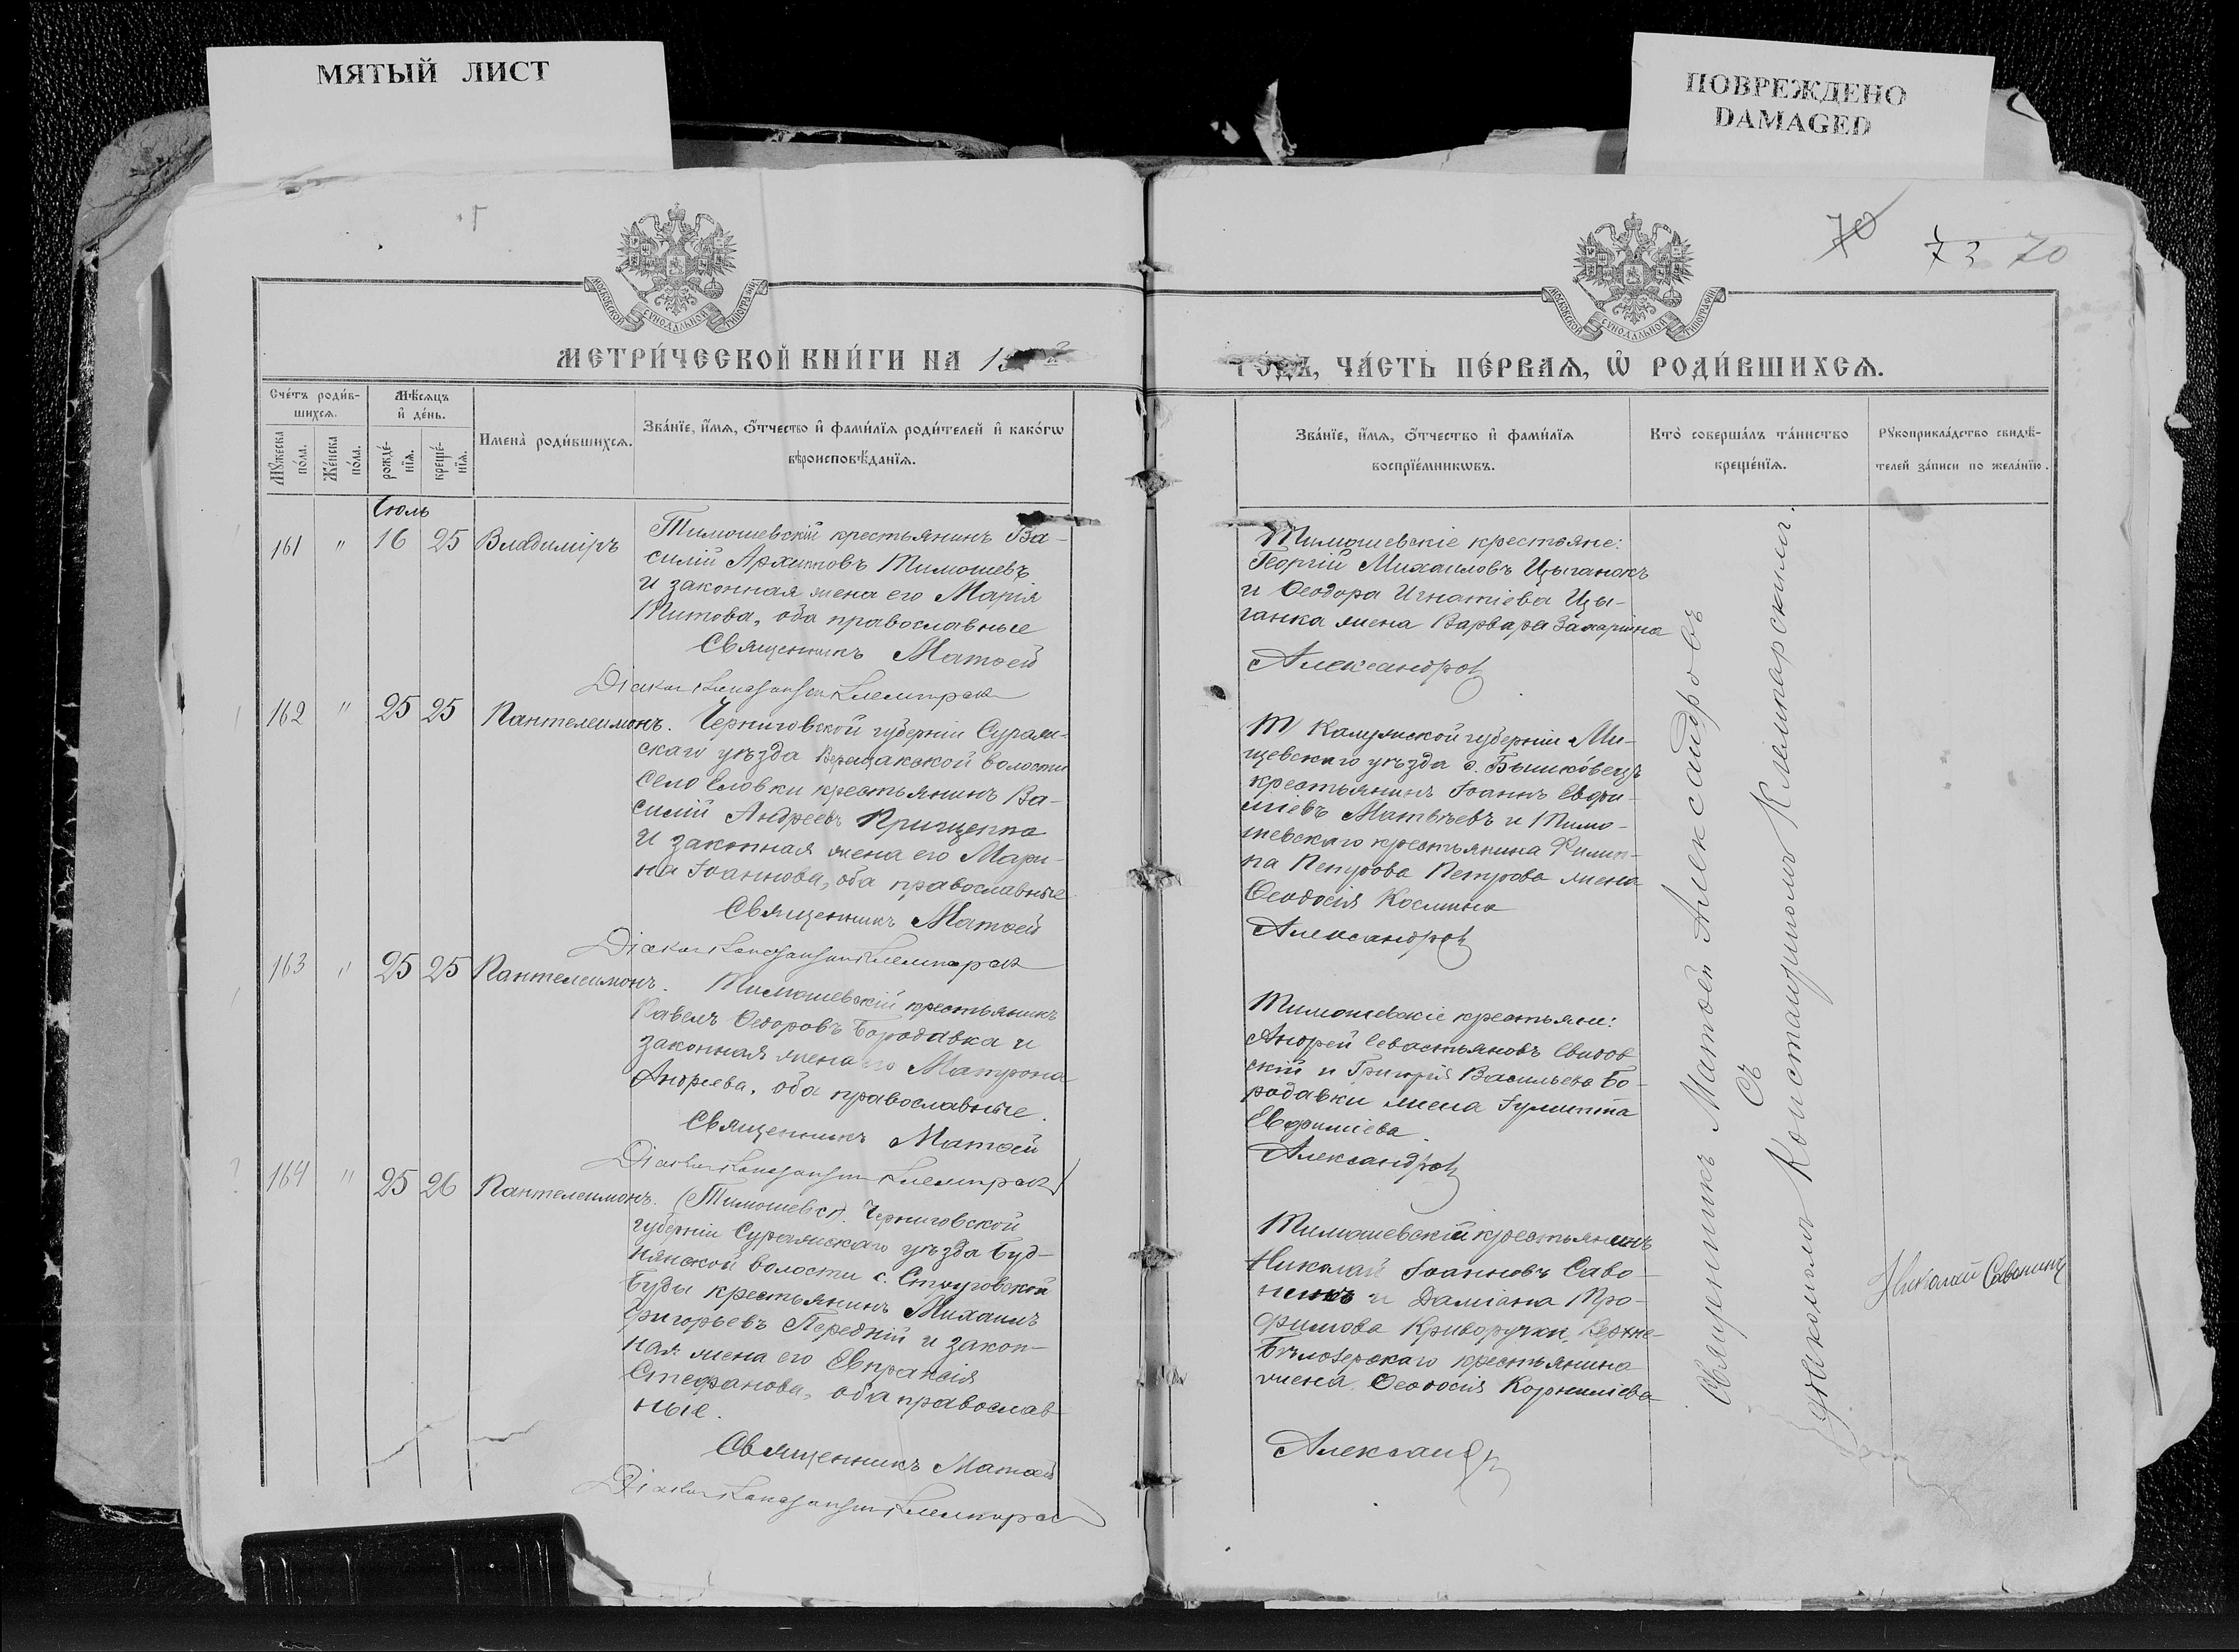 МЯТЫЙ ЛИСТ
ПОВРЕЖДЕНО
DAMAGED
70
73 70
МОСКОВСКОЙ СѴНОДАЛЬНОЙ ТИПОГРАФІИ
МОСКОВСКОЙ СѴНОДАЛЬНОЙ ТИПОГРАФІИ
МЕТРИ́ЧЕСКОЙ КНИ́ГИ НА 1
ГО́ДЪ, ЧА́СТЬ ПЕ́РВАѦ, Ѡ҆ РОДИ́ВШИХСѦ.
Сче́тъ роди́в-
шихсѧ.
Мꙋ́жеска по́ла.
Же́нска по́ла.
Мѣ́сѧцъ
и҆ де́нь.
рожде́-
нїѧ.
креще́-
нїѧ.
Имена̀ роди́вшихсѧ.
Зва́нїе, и҆́мѧ, ѻ҆́тчество и҆ фами́лїѧ роди́телей и҆ како́гѡ
вѣроисповѣ́данїѧ.
Зва́нїе, и҆́мѧ, ѻ҆́тчество и҆ фами́лїѧ
воспрїе́мникѡвъ.
Кто̀ соверша́лъ та́инство
креще́нїѧ.
Рꙋкоприкла́дство свидѣ́-
телей за́писи по жела́нїю.
Іюль
161 " 16 25 Владиміръ
Тимошевскій крестьянинъ Ва-
силій Архиповъ Тимошевъ
и законная жена его Марія
Титова, оба православные
Священникъ Матѳей
Діаконъ Константинъ Клентарскій
Тимошевскіе крестьяне:
Георгій Михаиловъ Цыганокъ
и Ѳеодора Игнатіева Цы-
ганка жена Варвара Захарина
Александровъ
162 " 25 25 Пантелеимонъ.
Черниговской губерніи Сураж-
скаго уѣзда Верещакской волости
село Еловки крестьянинъ Ва-
силій Андреевъ Прищепа
и законная жена его Мари-
на Іоаннова, оба православные
Священникъ Матѳей
Діаконъ Константинъ Клентарскій
Калужской губерніи Ми-
щевскаго уѣзда
крестьянинъ Іоаннъ Евѳи-
міевъ Матвѣевъ и Тимо-
шевскаго крестьянина Филип-
па Петрова Петрова жена
Ѳеодосія Космина
Александровъ
163 " 25 25 Пантелеимонъ.
Тимошевскій крестьянинъ
Павелъ Ѳедоровъ Бородавка и
законная жена его Матрона
Андреева, оба православные.
Священникъ Матѳей
Діаконъ Константинъ Клентарскій
Тимошевскіе крестьяне:
Андрей Севастьяновъ Свидов
скій и Григорія Васильева Бо-
родавки жена Іулитта
Евѳиміева.
Александровъ
164 " 25 26 Пантелеимонъ.
(Тимошевск). Черниговской
губерніи Суражскаго уѣзда Буд-
нянской волости с. Струговской
Буды крестьянинъ Михаилъ
Григорьевъ Передній и закон-
ная жена его Евпраксія
Стефанова, оба православ-
ные.
Священникъ Матѳей
Діаконъ Константинъ Клентарскій
Тимошевскій крестьянинъ
Николай Іоанновъ Саво-
ненкъ и Даміана Тро-
фимова Криворучки, Верхне-
Бѣлозерскаго крестьянина
жена Ѳеодосія Корниліева
Александровъ
Священникъ Матѳей Александровъ
съ
діакономъ Константиномъ Клентарскимъ.
Николай Савонинъ